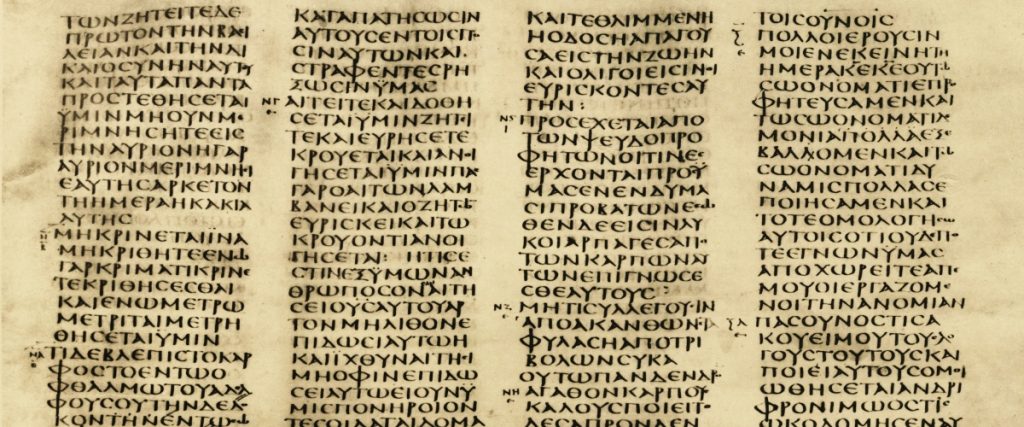 ΤΩΝΖΗΤΕΙΤΕΔΕ
ΠΡΩΤΟΝΤΗΝΒΑϹΙ
ΛΕΙΑΝΚΑΙΤΗΝΔΙ
ΚΑΙΟϹΥΝΗΝΑΥΤΟΥ
ΚΑΙΤΑΥΤΑΠΑΝΤΑ
ΠΡΟϹΤΕΘΗϹΕΤΑΙ
ΫΜΙΝΜΗΟΥΝΜΕ
ΡΙΜΝΗϹΗΤΕΕΙϹ
ΤΗΝΑΥΡΙΟΝΗΓΑΡ
ΑΥΡΙΟΝΜΕΡΙΜΝΗϹΙ
ΕΑΥΤΗϹΑΡΚΕΤΟΝ
ΤΗΗΜΕΡΑΗΚΑΚΙΑ
ΑΥΤΗϹ
ΜΗΚΡΙΝΕΤΑΙΪΝΑ
ΜΗΚΡΙΘΗΤΕΕΝΩ
ΓΑΡΚΡΙΜΑΤΙΚΡΙΝΕ
ΤΕΚΡΙΘΗϹΕϹΘΑΙ
ΚΑΙΕΝΩΜΕΤΡΩ
ΜΕΤΡΙΤΑΙΜΕΤΡΗ
ΘΗϹΕΤΑΙΥΜΙΝ
ΤΙΔΕΒΛΕΠΙϹΤΟΚΑΡ
ΦΟϹΤΟΕΝΤΩΟ
ΦΘΑΛΜΩΤΟΥΑΔΕΛ
ΦΟΥϹΟΥΤΗΝΔΕΔΟ
ΚΟΝΤΗΝΕΝΤΩ
ΚΑΤΑΠΑΤΗϹΩϹΙΝ
ΑΥΤΟΥϹΕΝΤΟΙϹΠΟ
ϹΙΝΑΥΤΩΝΚΑΙ
ϹΤΡΑΦΕΝΤΕϹΡΗ
ΞΩϹΙΝΫΜΑϹ
ΝΓ ΑΙΤΕΙΤΕΚΑΙΔΟΘΗ
ϹΕΤΑΙΫΜΙΝΖΗΤΙ
ΤΕΚΑΙΕΥΡΗϹΕΤΕ
ΚΡΟΥΕΤΑΙΚΑΙΑΝΟΙ
ΓΗϹΕΤΑΙΫΜΙΝΠΑϹ
ΓΑΡΟΑΙΤΩΝΛΑΜ
ΒΑΝΕΙΚΑΙΟΖΗΤΩ
ΕΥΡΙϹΚΕΙΚΑΙΤΩ
ΚΡΟΥΟΝΤΙΑΝΟΙ
ΓΗϹΕΤΑΙ: ΗΤΙϹΕ
ϹΤΙΝΕΞΫΜΩΝΑΝ
ΘΡΩΠΟϹΟΝΑΙΤΗ
ϹΕΙΟΥϹΑΥΤΟΥΑΡ
ΤΟΝΜΗΛΙΘΟΝΕ
ΠΙΔΩϹΙΑΥΤΩΗ
ΚΑΙΪΧΘΥΝΑΙΤΗϹΙ
ΜΗΟΦΙΝΕΠΙΔΩ
ϹΕΙΑΥΤΩΕΙΟΥΝΫ
ΜΙϹΠΟΝΗΡΟΙΟΝ
ΤΕϹΟΙΔΑΤΑΙΔΟΜ
ΚΑΙΤΕΘΛΙΜΜΕΝΗ
ΗΟΔΟϹΗΑΠΑΓΟΥ
ϹΑΕΙϹΤΗΝΖΩΗΝ
ΚΑΙΟΛΙΓΟΙΕΙϹΙΝΟΙ
ΕΥΡΙϹΚΟΝΤΕϹΑΥ
ΤΗΝ:
ΠΡΟϹΕΧΕΤΑΙΑΠΟ
ΤΩΝΨΕΥΔΟΠΡΟ
ΦΗΤΩΝΟΙΤΙΝΕϹ
ΕΡΧΟΝΤΑΙΠΡΟΫ
ΜΑϹΕΝΕΝΔΥΜΑ
ϹΙΠΡΟΒΑΤΩΝΕϹΩ
ΘΕΝΔΕΕΙϹΙΝΛΥ
ΚΟΙΑΡΠΑΓΕϹΑΠΟ
ΤΩΝΚΑΡΠΩΝΑΥ
ΤΩΝΕΠΙΓΝΩϹΕ
ϹΘΕΑΥΤΟΥϹ:
ΝΖ ΜΗΤΙϹΥΛΛΕΓΟΥϹΙΝ
ΑΠΟΑΚΑΝΘΩΝϹΤΑ
ΦΥΛΑϹΗΑΠΟΤΡΙ
ΒΟΛΩΝϹΥΚΑ
ΟΥΤΩΠΑΝΔΕΝΔΡΟΝ
ΝΗ ΑΓΑΘΟΝΚΑΡΠΟΥϹ
ΚΑΛΟΥϹΠΟΙΕΙΤΟ
ΤΟΙϹΟΥΝΟΙϹ
ΠΟΛΛΟΙΕΡΟΥϹΙΝ
ΜΟΙΕΝΕΚΕΙΝΗΤΗ
ΗΜΕΡΑΚΕΚΕΟΥΤΩ
ϹΩΟΝΟΜΑΤΙΕΠΡΟ
ΦΗΤΕΥϹΑΜΕΝΚΑΙ
ΤΩϹΩΟΝΟΜΑΤΙΔΑΙ
ΜΟΝΙΑΠΟΛΛΑΕΞΕ
ΒΑΛΛΟΜΕΝΚΑΙΤΩ
ϹΩΟΝΟΜΑΤΙΔΥ
ΝΑΜΙϹΠΟΛΛΑϹΕ
ΠΟΙΗϹΑΜΕΝΚΑΙ
ΤΟΤΕΟΜΟΛΟΓΗϹΩ
ΑΥΤΟΙϹΟΤΙΟΥΔΕΠΟ
ΤΕΕΓΝΩΝΫΜΑϹ
ΑΠΟΧΩΡΕΙΤΕΑΠΕ
ΜΟΥΟΙΕΡΓΑΖΟΜΕ
ΝΟΙΤΗΝΑΝΟΜΙΑΝ
ΠΑϹΟΥΝΟϹΤΙϹΑ
ΚΟΥΕΙΜΟΥΤΟΥϹΛΟ
ΓΟΥϹΤΟΥΤΟΥϹΚΑΙ
ΠΟΙΕΙΑΥΤΟΥϹΟΜΟΙ
ΩΘΗϹΕΤΑΙΑΝΔΡΙ
ΦΡΟΝΙΜΩΟϹΤΙϹ